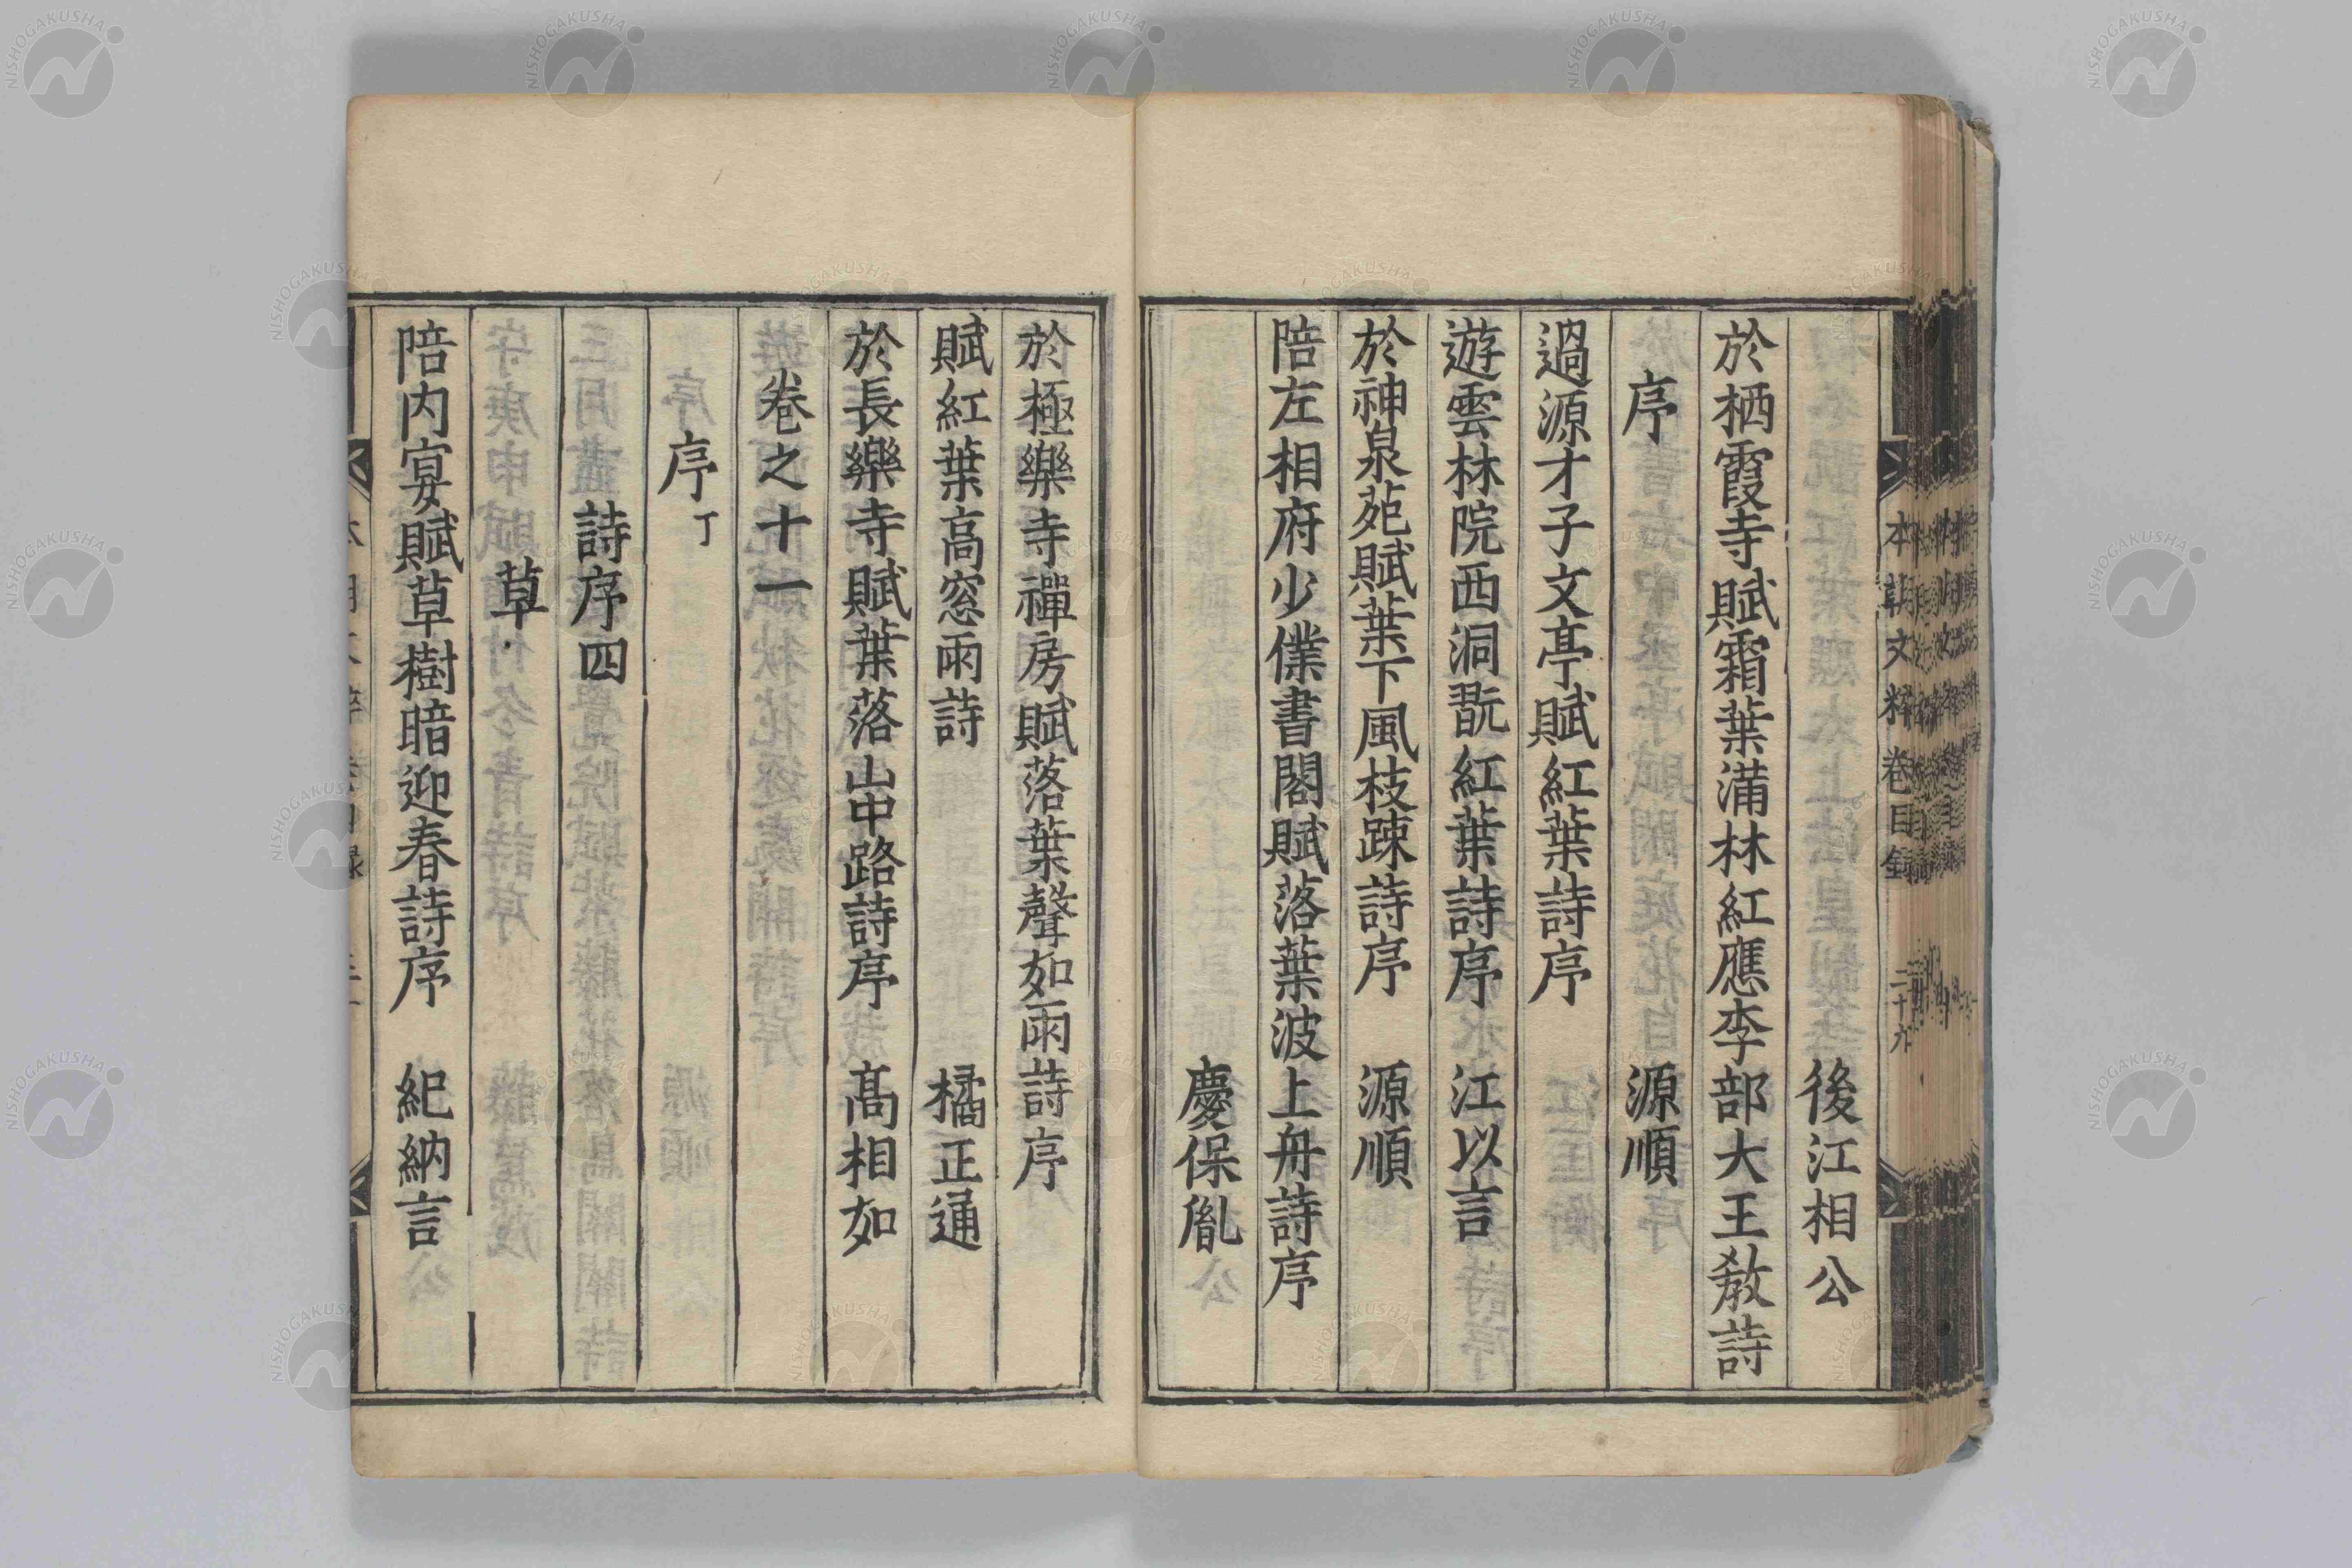 後江相公
於栖霞寺賦霜葉滿林紅應李部大王教詩
序　源順
過源才子文亭賦紅葉詩序
遊雲林院西洞翫紅葉詩序　江以言
於神泉苑賦葉下風枝踈詩序　源順
陪左相府少僕書閣賦落葉波上舟詩序
慶保胤
於極樂寺禪房賦落葉聲如雨詩序
賦紅葉高窓雨詩　橘正通
於長樂寺賦葉落山中路詩序　高相如
卷之十一
序丁
詩序四
草
陪内宴賦草樹暗迎春詩序　紀納言
本朝文粹卷目録　二十九
NISHOGAKUSHA